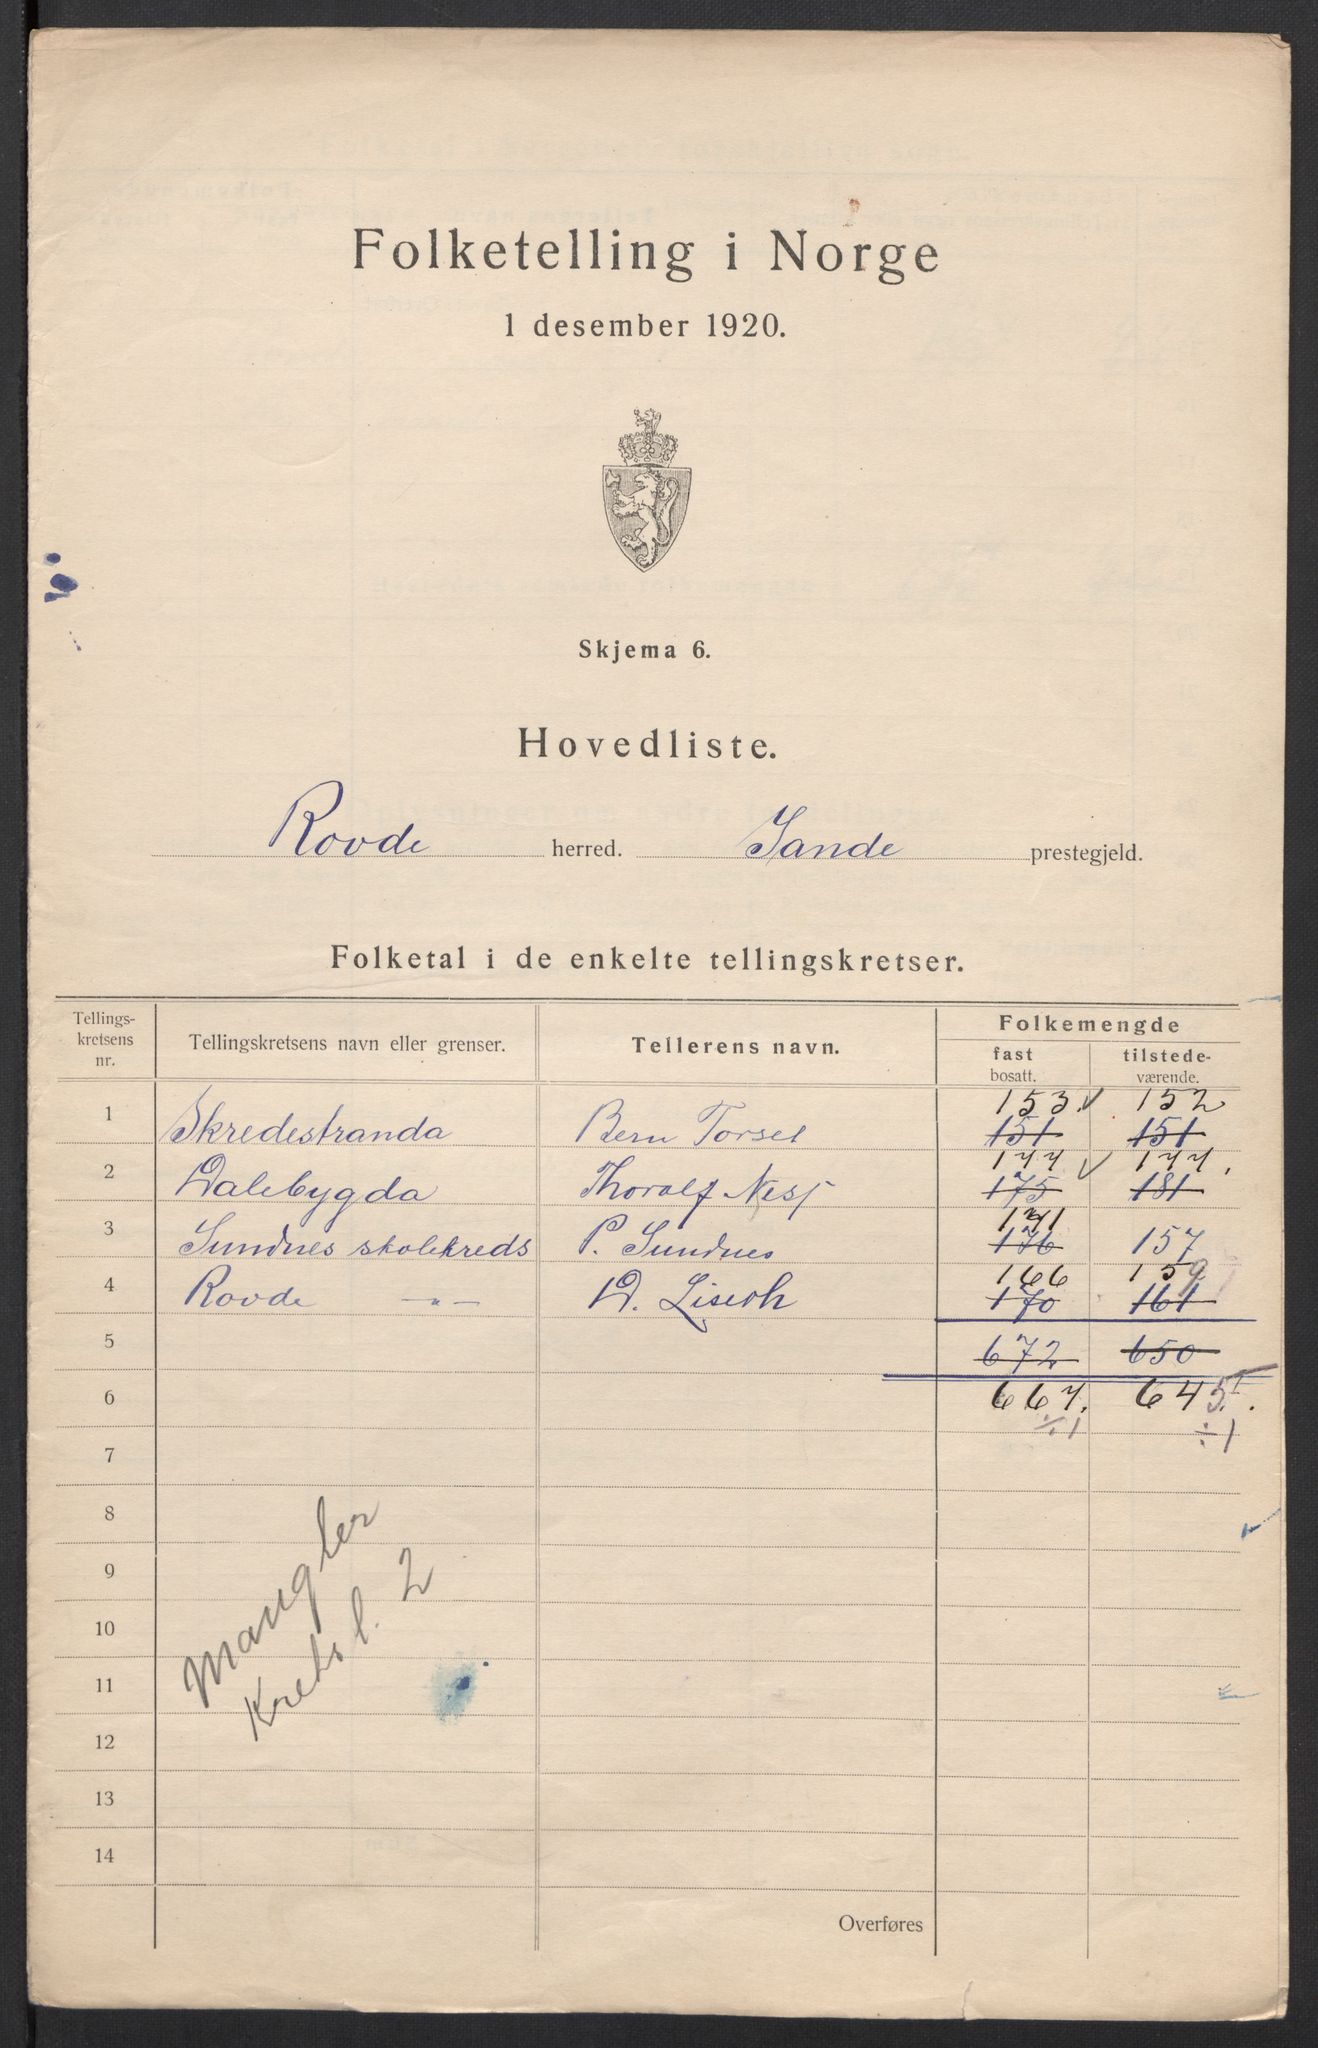 Folketelling i Norge
1 desember 1920.
Skjema 6.
Hovedliste.
Rovde herred. Sande prestegjeld.
Folketal i de enkelte tellingskretser.
Tellings-
kretsens
nr.
Tellingskretsens navn eller grenser.
Tellerens navn.
Folkemengde
fast
bosatt.
tilstede-
værende.
153. 152
1 Skredestranda Bern Torset 151 151
177 177.
2 Dalebygda Thoralf 175 181
171
3 Sundnes skolekreds P. Sundnes 176 157
166 159
4 Rovde -"- D. Liseth 170 161
5 672 650
6 667. 645.
÷1 ÷1
7
8
9
10
11
12
13
14
Mangler
Kretsl. 2
Overføres